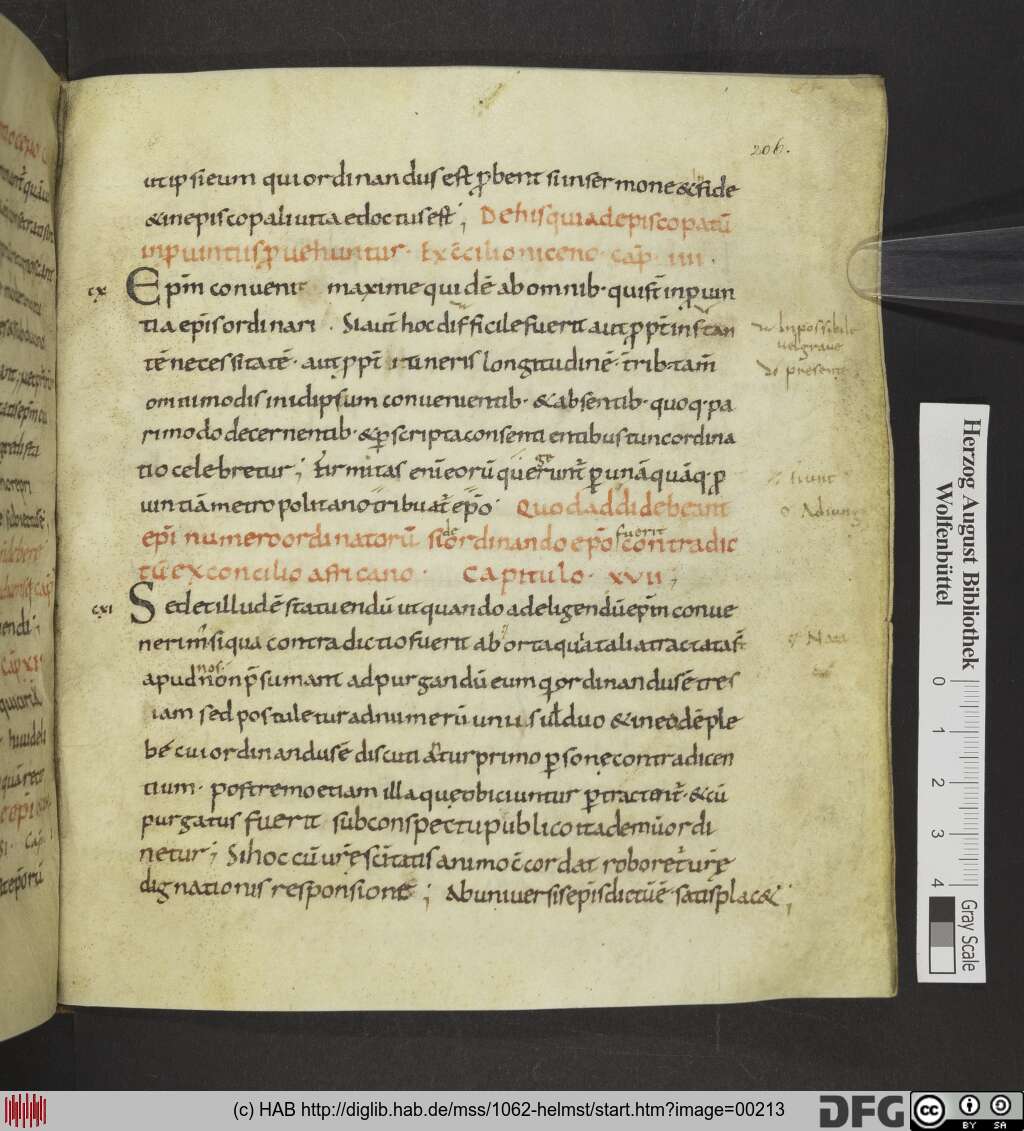 206.
ut ipsi eum qui ordinandus est ꝓbent si in sermone & fide
& in episcopali uita edoctus est; De his qui ad episcopatū
in ꝓuintiis ꝓuehuntur. Ex c̄cilio niceno. cap̄. iiii.
cx Ep̄m conuenit maxime quidē ab omnib· qui st̄ in ꝓuin
tia ep̄is ordinari. Si aut̄ hoc difficile fuerit aut ꝓpt̄ instan
tē necessitatē. aut ꝓpt̄ itineris longitudinē. trib· tam̄
omnimodis in idipsum conuenientib· & absentib· quoq· pa
ri modo decernentib· & ꝑ scripta consentientibus tunc ordina
tio celebretur; firmitas eni eorū que gerunt̄ ꝑ unāquāq· ꝓ
uintiā metropolitano tribuat̄ ep̄o. Quod addi debeant
ep̄i numero ordinatorū si de ordinando ep̄o fuerit contradic
tū ex concilio africano. Capitulo. xvii;
cxi Sed et illud ē statuendū ut quando ad eligendū ep̄m conue
nerim̄ si qua contradictio fuerit aborta quia talia tractata st̄
apud nos non p̄sumant ad purgandū eum qui ordinandus ē tres
iam sed postuletur ad numerū unus ul duo & in eodē ple
be cui ordinandus ē discutiatur primo ꝑsonę contradicen
tium. postremo etiam illa quę obiciuntur ꝑtractent̄. & cū
purgatus fuerit sub conspectu publico ita demū ordi
netur; Si hoc cū ur̄ę sc̄itatis animo c̄cordat roboret̄ ur̄ę
dignationis responsione; Ab uniuersis ep̄is dictū ē. satis plac&;
Inpossibile
uel graue
presente
fiunt
Herzog August Bibliothek
Wolfenbüttel
0 1 2 3 4
Gray Scale
(c) HAB http://diglib.hab.de/mss/1062-helmst/start.htm?image=00213
DFG
cc BY SA